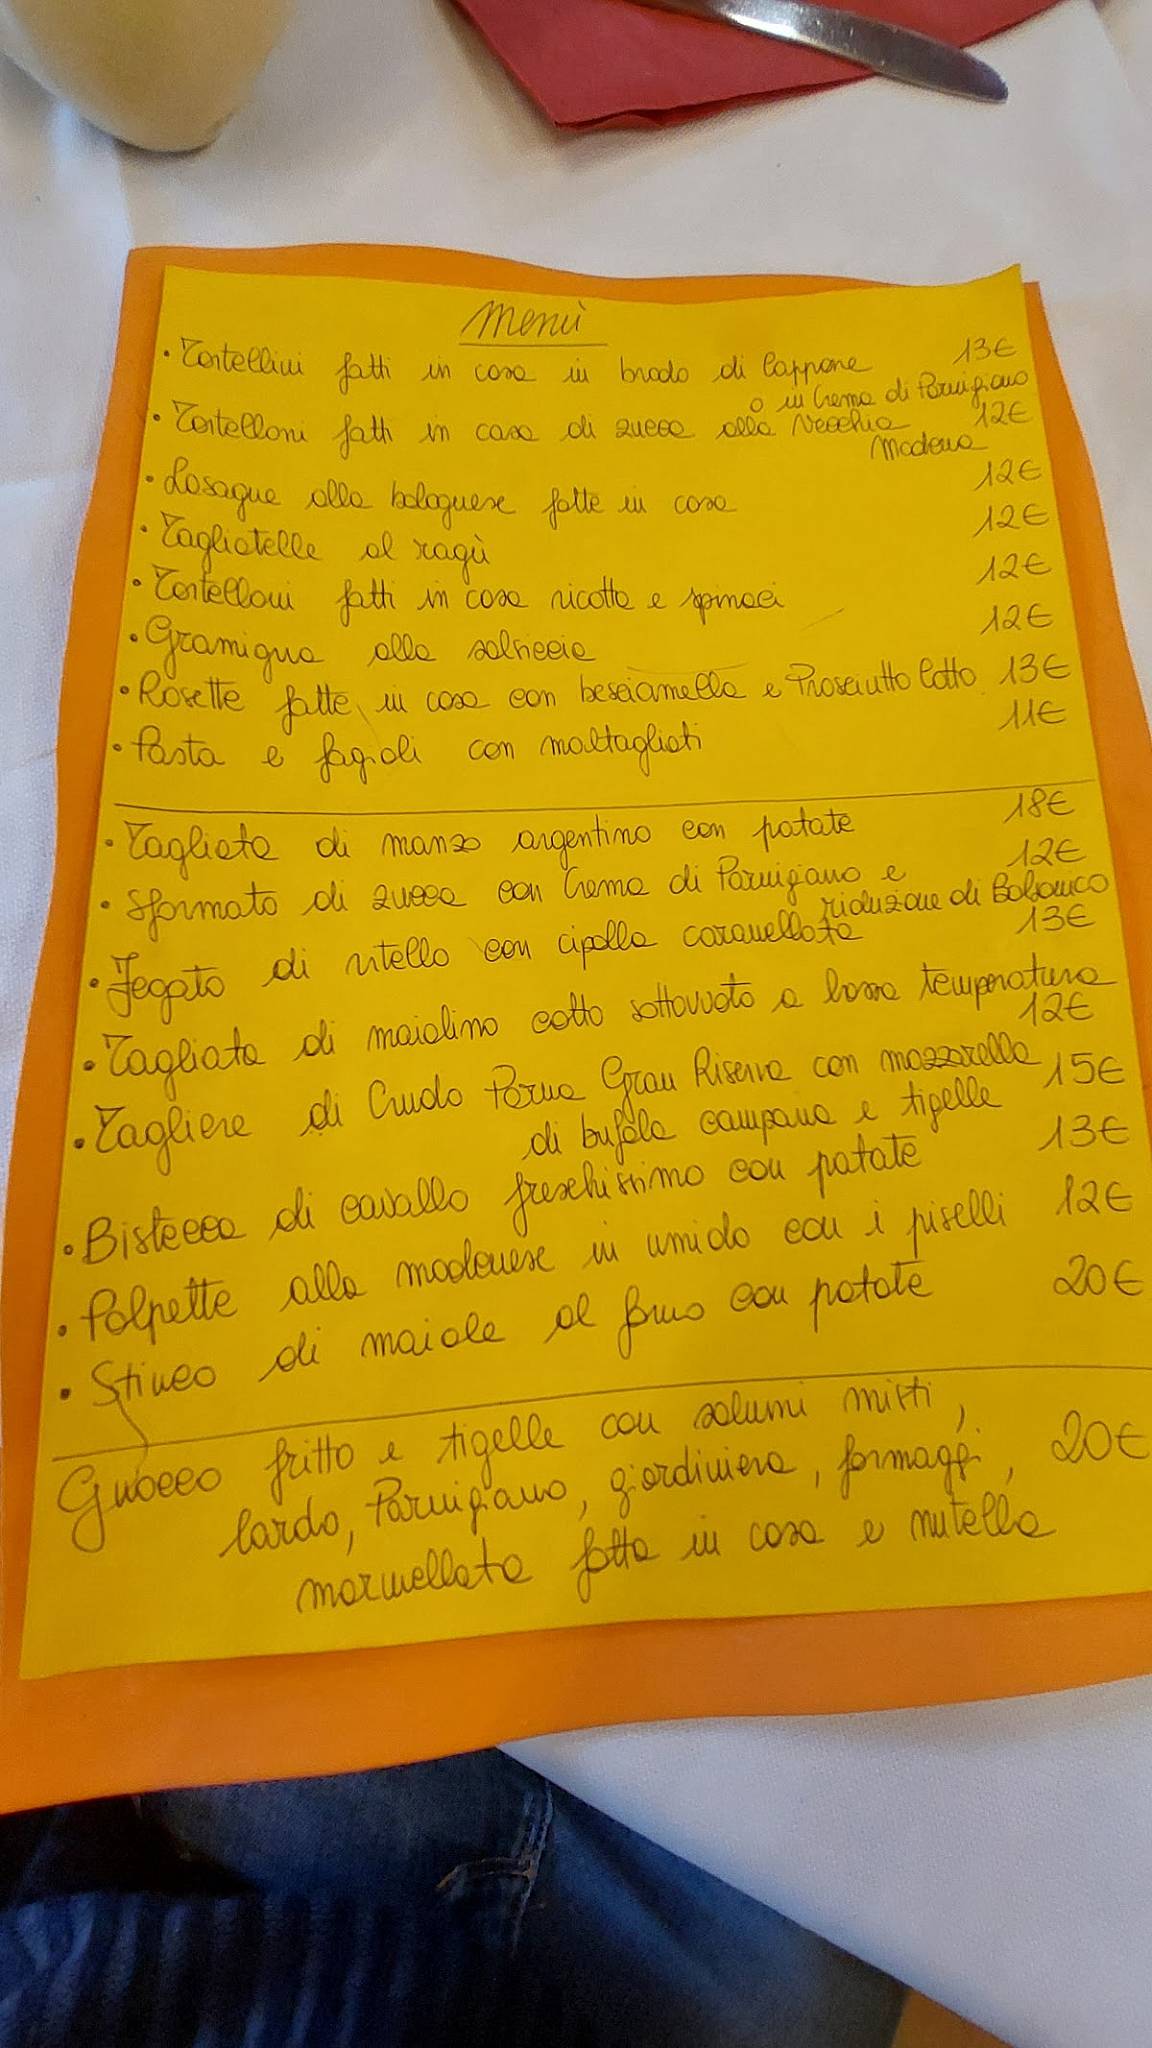 Menù
• Tortellini fatti in casa in brodo di Cappone 13€
o in Crema di Parmigiano
• Tortelloni fatti in casa di zucca alla Vecchia 12€
Modena
• Lasagne alla bolognese fatte in casa 12€
• Tagliatelle al ragù 12€
• Tortelloni fatti in casa ricotta e spinaci 12€
• Gramigna alla salsiccia 12€
• Rosette fatte in casa con besciamella e Prosciutto Cotto 13€
• Pasta e fagioli con maltagliati 11€
• Tagliata di manzo argentino con patate 18€
• Sformato di zucca con Crema di Parmigiano e 12€
riduzione di Balsamico
• Fegato di vitello con cipolla caramellata 13€
• Tagliata di maialino cotto sottovuoto a bassa temperatura
12€
• Tagliere di Crudo Parma Gran Riserva con mozzarella 15€
di bufala campana e tigelle
• Bistecca di cavallo freschissimo con patate 13€
• Polpette alla modenese in umido con i piselli 12€
• Stinco di maiale al forno con patate 20€
Gnocco fritto e tigelle con salumi misti,
lardo, Parmigiano, giardiniera, formaggi, 20€
marmellata fatta in casa e nutella